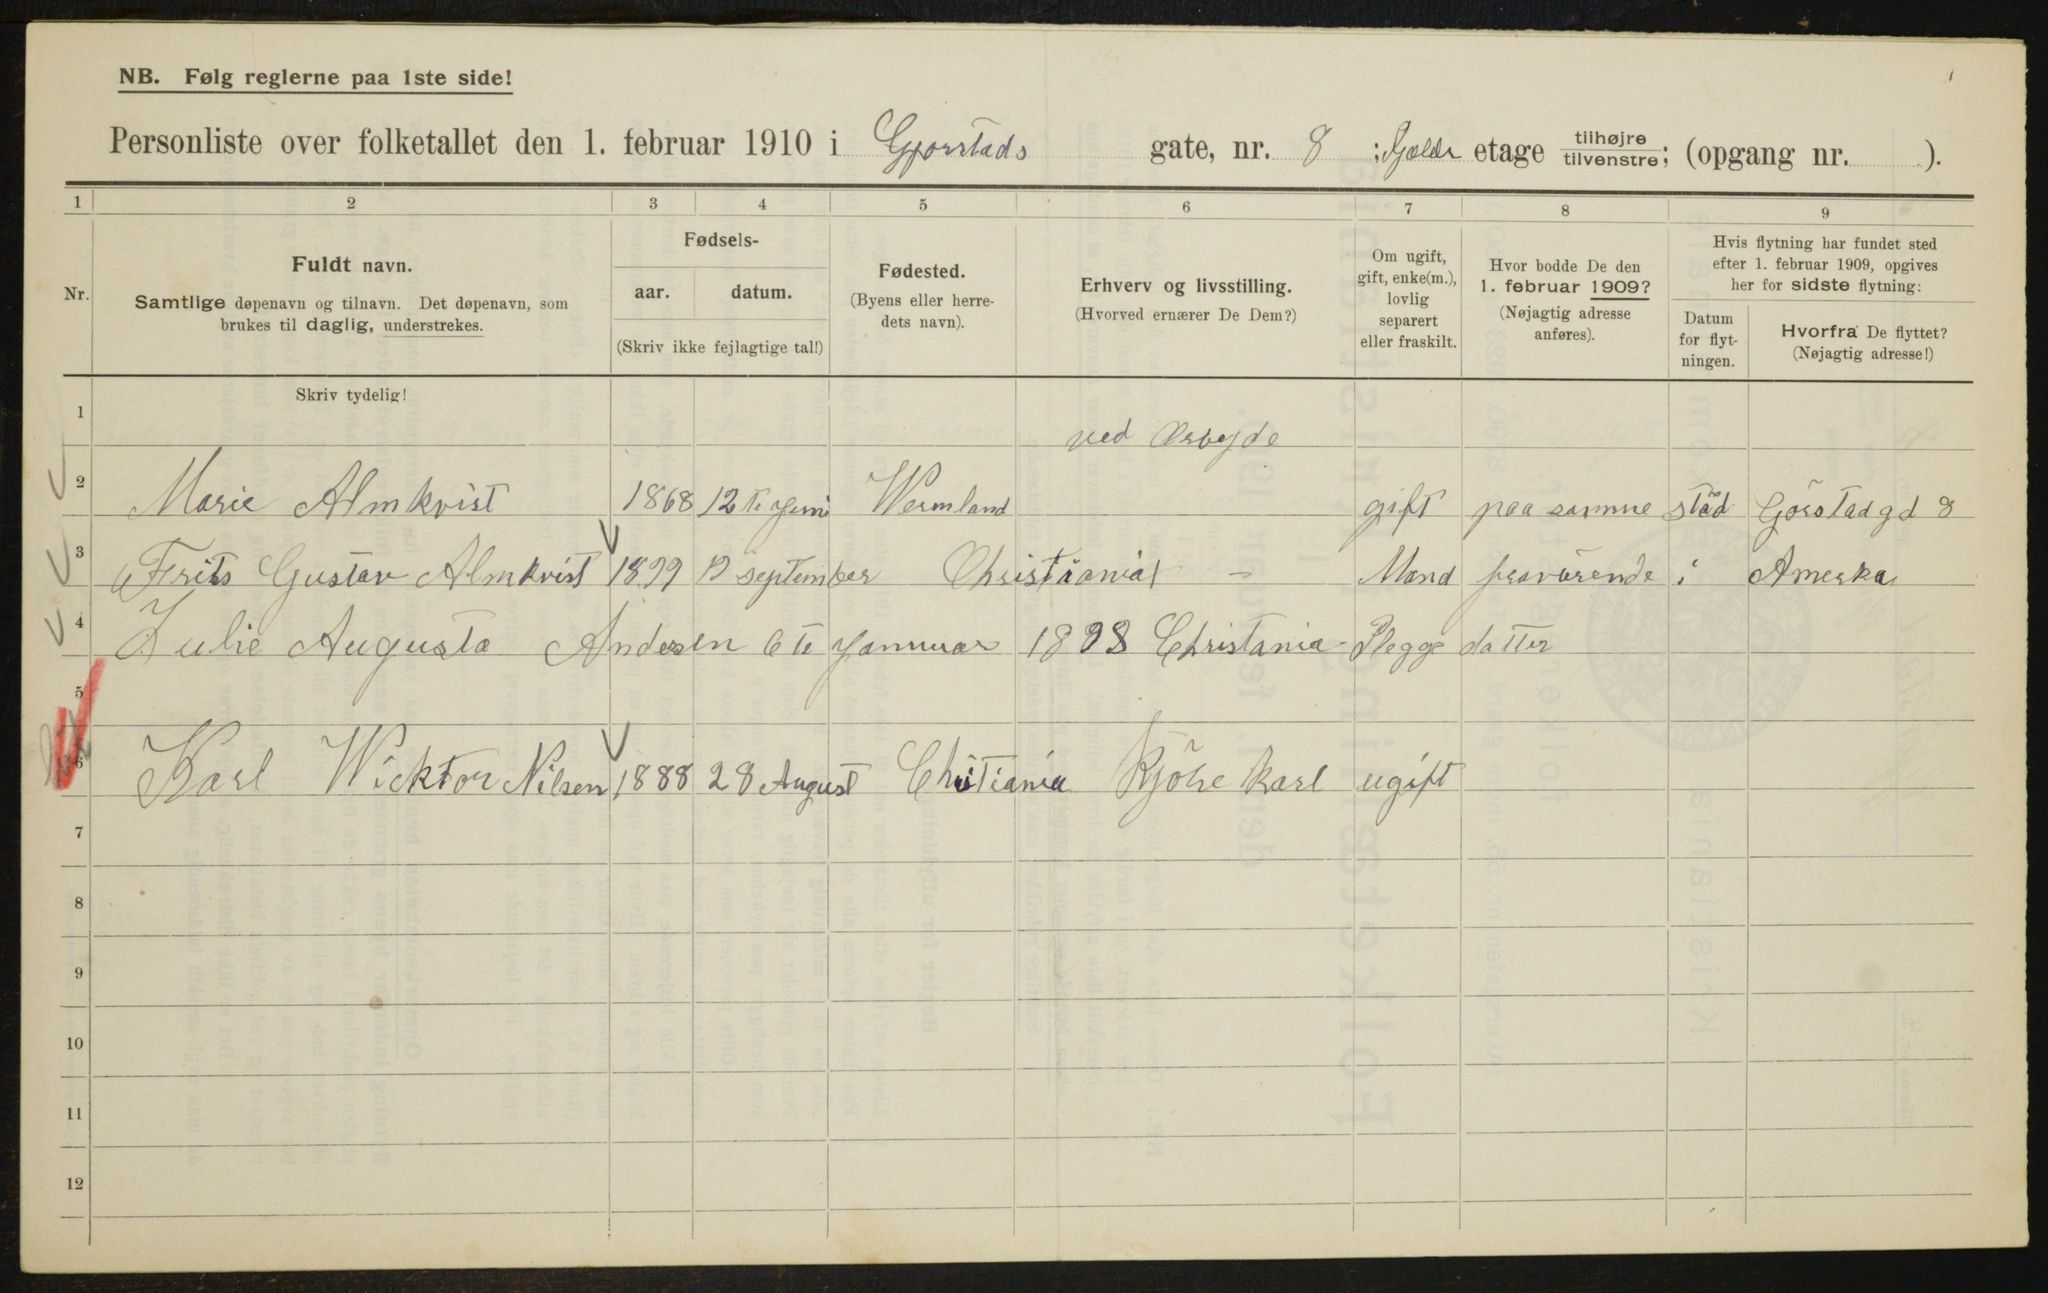 NB. Følg reglerne paa 1ste side!
Personliste over folketallet den 1. februar 1910 i Gjørstads gate, nr. 8 ; Kjælder etage tilhøjre tilvenstre; (opgang nr. ).
1 2 3 4 5 6 7 8 9
Nr.
Fuldt navn.
Samtlige døpenavn og tilnavn. Det døpenavn, som
brukes til daglig, understrekes.
Fødsels-
aar. datum.
(Skriv ikke fejlagtige tal!)
Fødested.
(Byens eller herre-
dets navn).
Erhverv og livsstilling.
(Hvorved ernærer De Dem?)
Om ugift,
gift, enke(m.),
lovlig
separert
eller fraskilt.
Hvor bodde De den
1. februar 1909?
(Nøjagtig adresse
anføres).
Hvis flytning har fundet sted
efter 1. februar 1909, opgives
her for sidste flytning:
Datum
for flyt-
ningen.
Hvorfra De flyttet?
(Nøjagtig adresse!)
Skriv tydelig!
1 ved Arbeyde
2 Marie Almkvist 1868 12 te Juni Wermland gift paa samme städ Görstadgd 8
3 Frits Gustav Almkvist 1899 19 september Christiania - Mand fraværende i Amerka
4 Julie Augusta Andersen 6 te Januar 1898 Christania - Plegge datter
5
6 Karl Wicktor Nilsen 1888 28 August Christiania Kjöre karl ugift
7
8
9
10
11
12